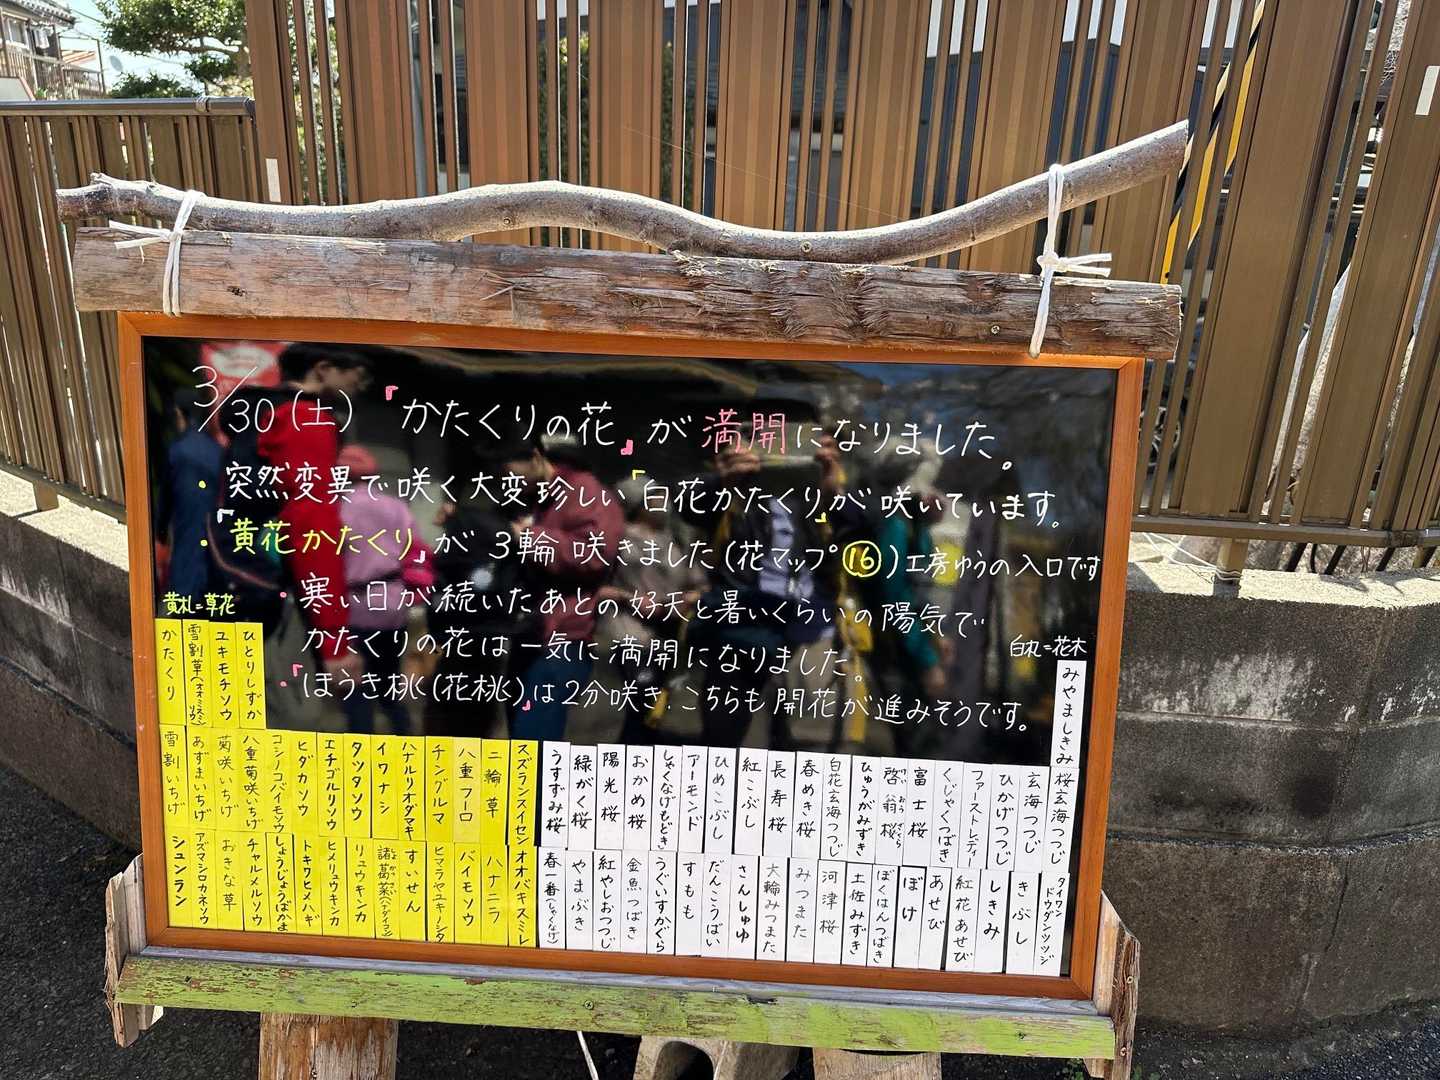 3/30(土)「かたくりの花」が満開になりました。
・突然変異で咲く大変珍しい「白花かたくり」が咲いています。
・「黄花かたくり」が3輪咲きました(花マップ⑯)工房ゆうの入口です
・寒い日が続いたあとの好天と暑いくらいの陽気で
かたくりの花は一気に満開になりました。
・「ほうき桃(花桃)」は2分咲き、こちらも開花が進みそうです。
黄札=草花
かたくり
雪割草(オオミスミソウ)
ユキモチソウ
ひとりしずか
雪割いちげ
あずまいちげ
菊咲いちげ
八重菊咲いちげ
コシノコバイモソウ
ヒダカソウ
エチゴルリソウ
タツタソウ
イワナシ
ハナルリオダマキ
チングルマ
八重フーロ
二輪草
スズランスイセン
シュンラン
アズマシロカネソウ
おきな草
チャルメルソウ
しょうじょうばかま
トキワヒメハギ
ヒメリュウキンカ
リュウキンカ
諸葛菜(ハナダイコン)
すいせん
ヒマラヤユキノシタ
バイモソウ
ハナニラ
オオバキスミレ
白札=花木
みやましきみ
うすずみ桜
緑がく桜
陽光桜
おかめ桜
しゃくなげもどき
アーモンド
ひめこぶし
紅こぶし
長寿桜
春めき桜
白花玄海つつじ
ひゅうがみずき
啓翁桜
富士桜
くじゃくつばき
ファーストレディー
ひかげつつじ
玄海つつじ
桜玄海つつじ
春一番(しゃくなげ)
やまぶき
紅やしおつつじ
金魚つばき
うぐいすかぐら
すもも
だんこうばい
さんしゅゆ
大輪みつまた
みつまた
河津桜
土佐みずき
ぼくはんつばき
ぼけ
あせび
紅花あせび
しきみ
きぶし
タイワンドウダンツツジ